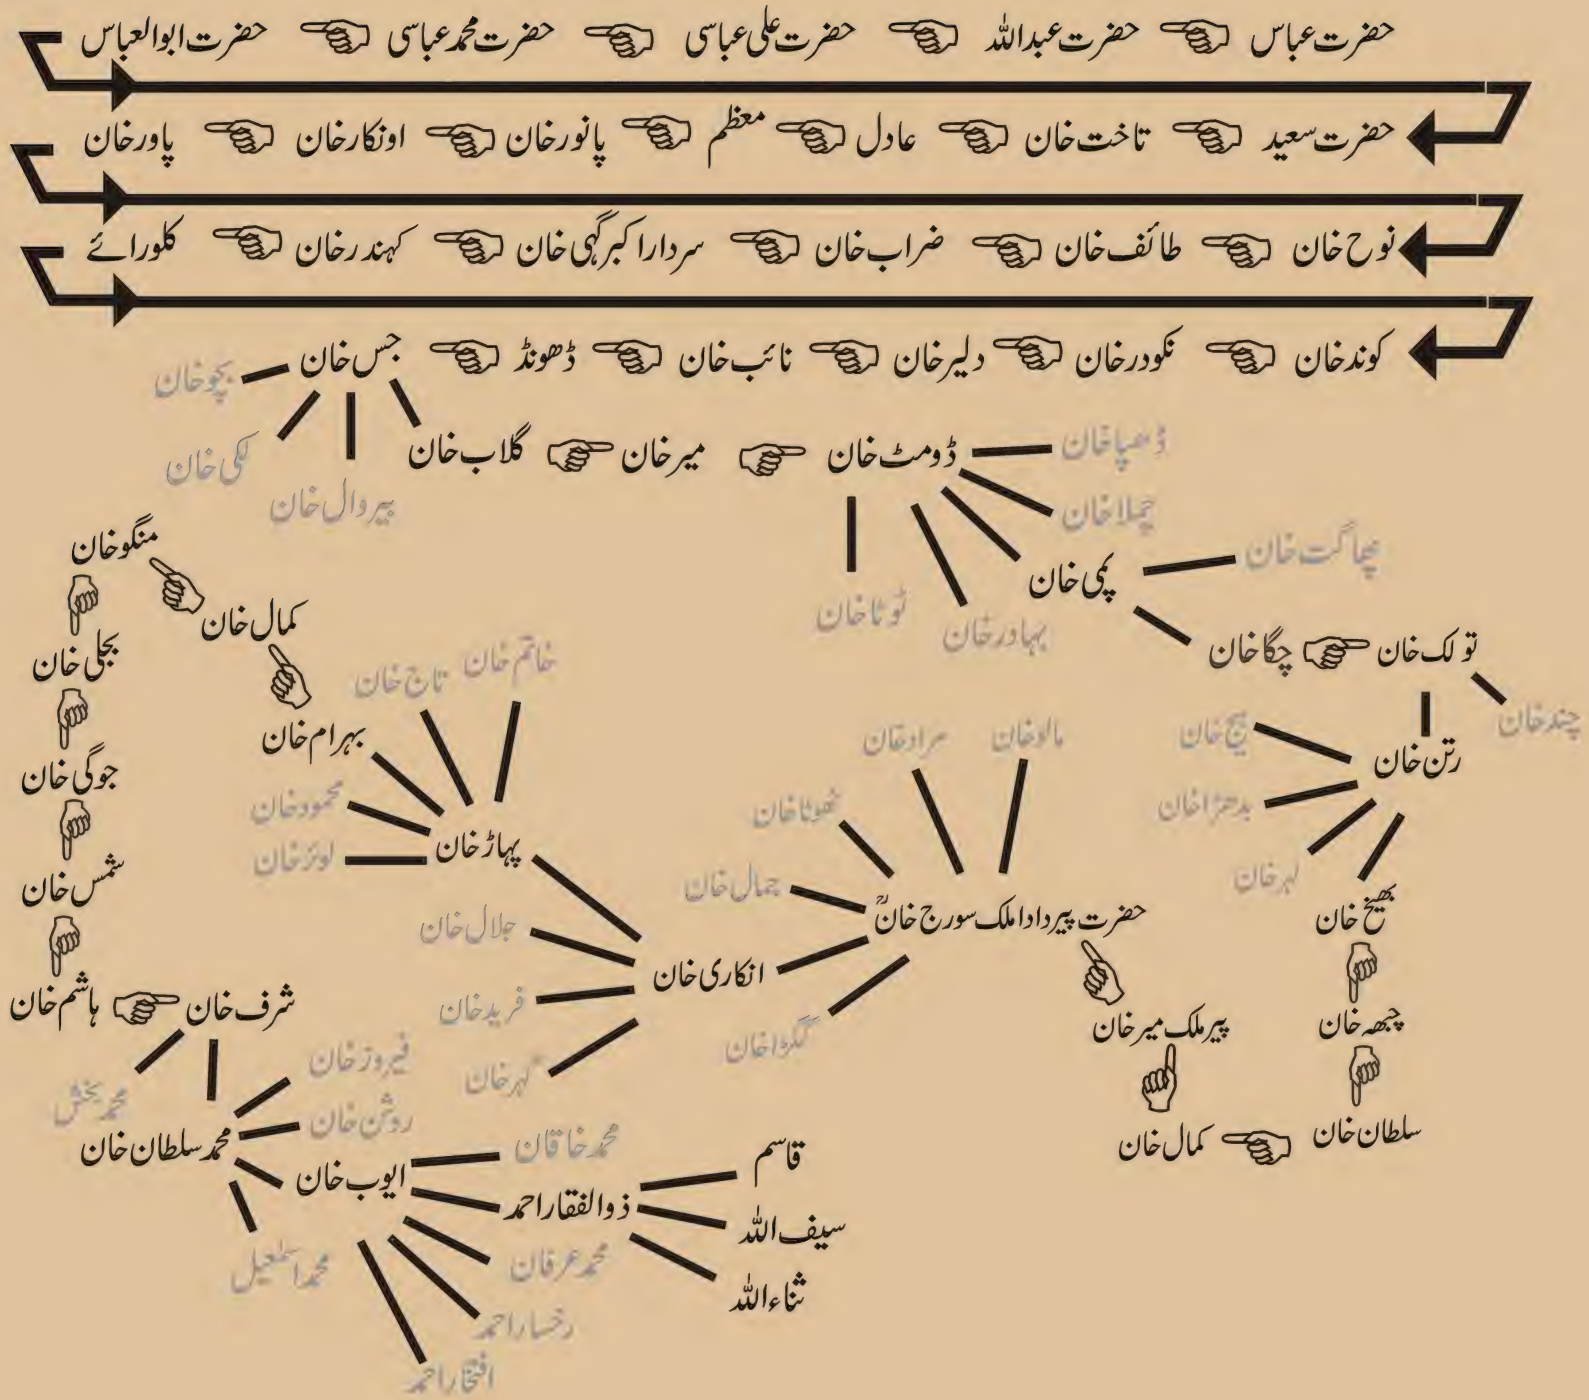 حضرت عباس حضرت عبداللہ حضرت علی عباسی حضرت محمد عباسی حضرت ابوالعباس
حضرت سعید تاخت خان عادل معظم پانور خان اونکار خان پاور خان
نوح خان طائف خان ضراب خان سردار اکبر گہی خان کہندر خان کلورائے
کوند خان نکودر خان دلیر خان نائب خان ڈھونڈ جس خان
بچو خان
لکی خان
بیروال خان
گلاب خان میر خان ڈومٹ خان
ڈھپا خان
چملا خان
پمی خان
بہادر خان
ٹوٹا خان
پھاگت خان
چگا خان تولک خان
چند خان
رتن خان
بدھڑا خان
لہر خان
بھیخ خان
چبھہ خان
سلطان خان کمال خان
پیر ملک میر خان
حضرت پیر دادا ملک سورج خانؒ
مالو خان
مراد خان
ٹھوٹا خان
جمال خان
گکڑا خان
انکاری خان
جلال خان
فرید خان
گہر خان
پہاڑ خان
خاتم خان
تاج خان
محمود خان
لونڑ خان
بہرام خان
کمال خان
منگو خان
بجلی خان
جوگی خان
شمس خان
ہاشم خان شرف خان
محمد بخش
محمد سلطان خان
فیروز خان
روشن خان
محمد اسمٰعیل
ایوب خان
محمد خاقان
ذوالفقار احمد
محمد عرفان
رخسار احمد
افتخار احمد
قاسم
سیف اللہ
ثناء اللہ